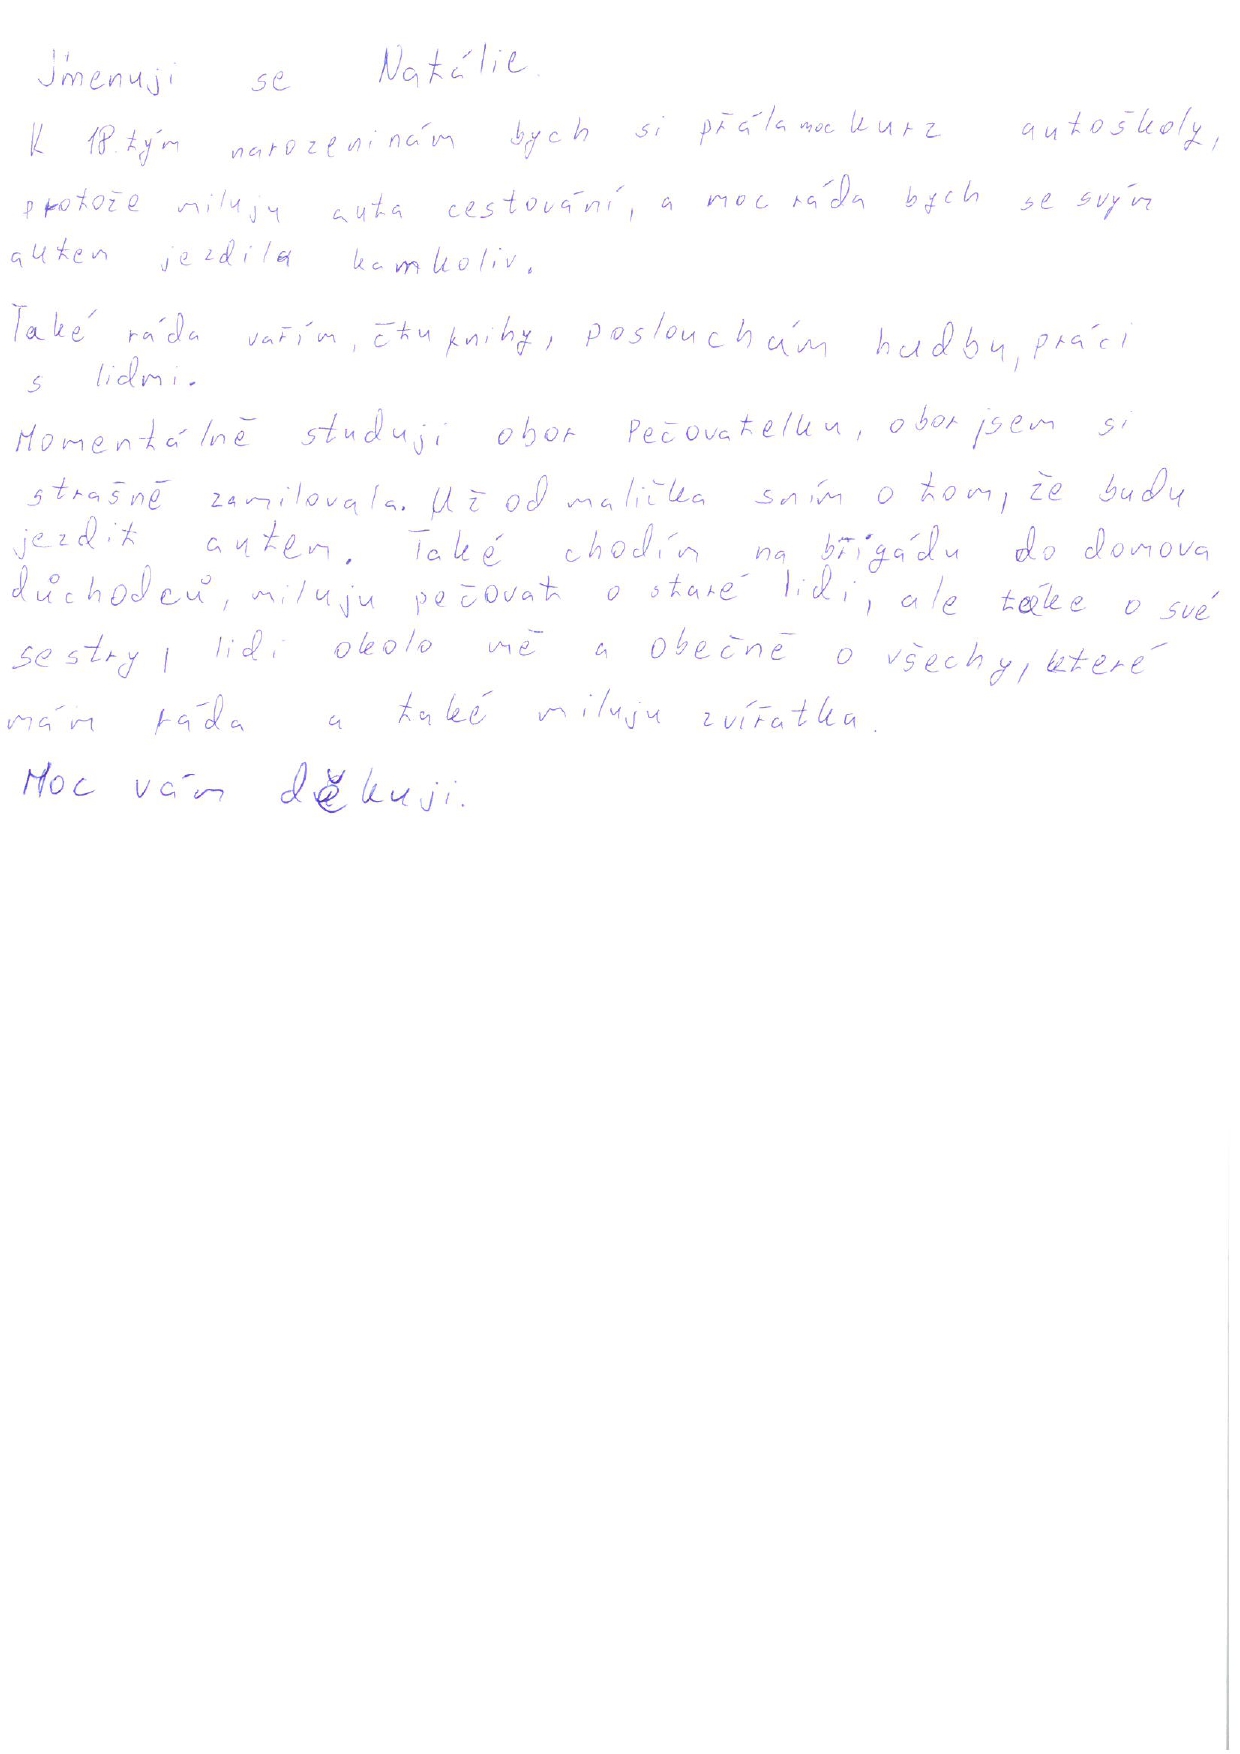 Jmenuji se Natálie.
K 18.tým narozeninám bych si přála moc kurz autoškoly,
protože miluju auta cestování, a moc ráda bych se svým
autem jezdila kamkoliv.
Také ráda vařím, čtu knihy, poslouchám hudbu, práci
s lidmi.
Momentálně studuji obor Pečovatelku, obor jsem si
strašně zamilovala. Už od malička sním o tom, že budu
jezdit autem. Také chodím na břigádu do domova
důchodců, miluju pečovat o staré lidi, ale take o své
sestry, lidi okolo mě a obečně o všechy, které
mám ráda a také miluju zvířatka.
Moc vám děkuji.